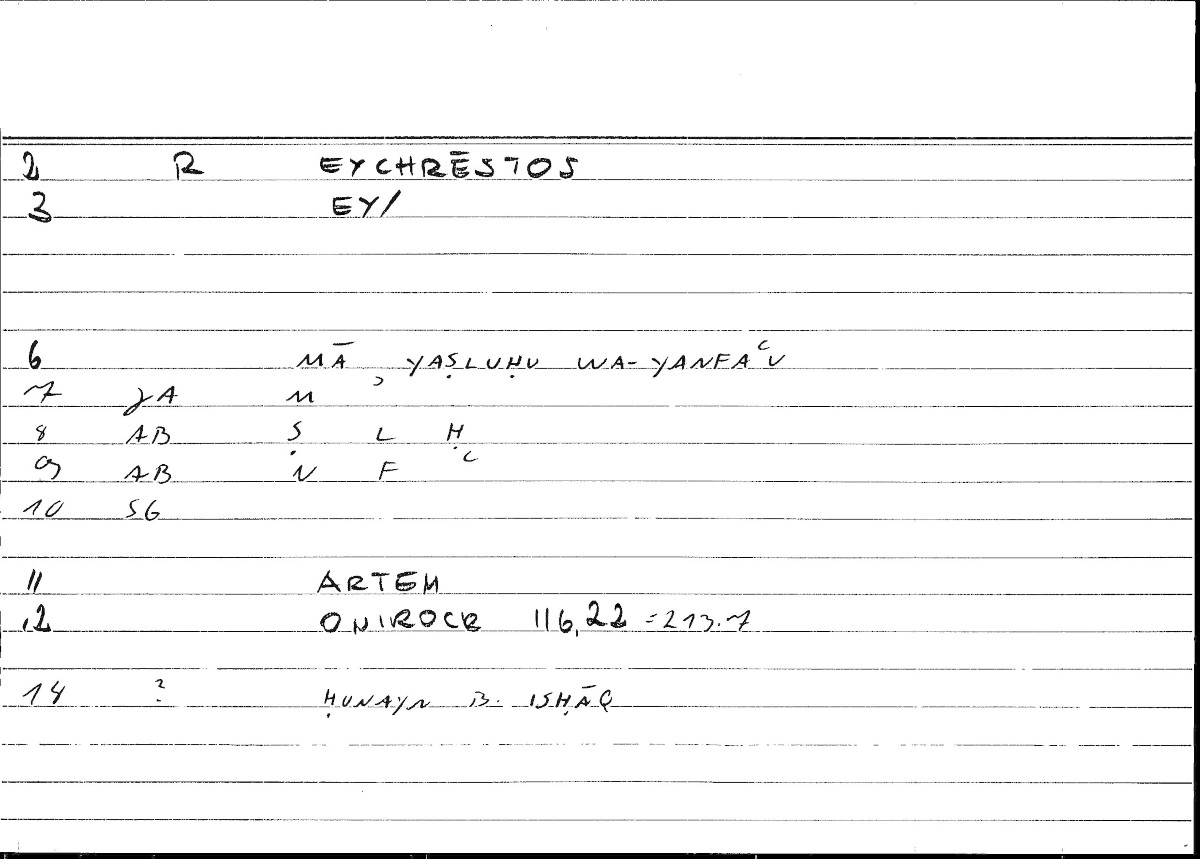 2 R EYCHRĒSTOS
3 EY/
6 MĀ YAṢLUḤU WA-YANFAʿU
7 JA M ʾ
8 AB Ṣ L Ḥ
9 AB N F ʿ
10 SG
11 ARTEM
12 ONIROCR 116,22 =213.7
14 ? ḤUNAYN B. ISḤĀQ